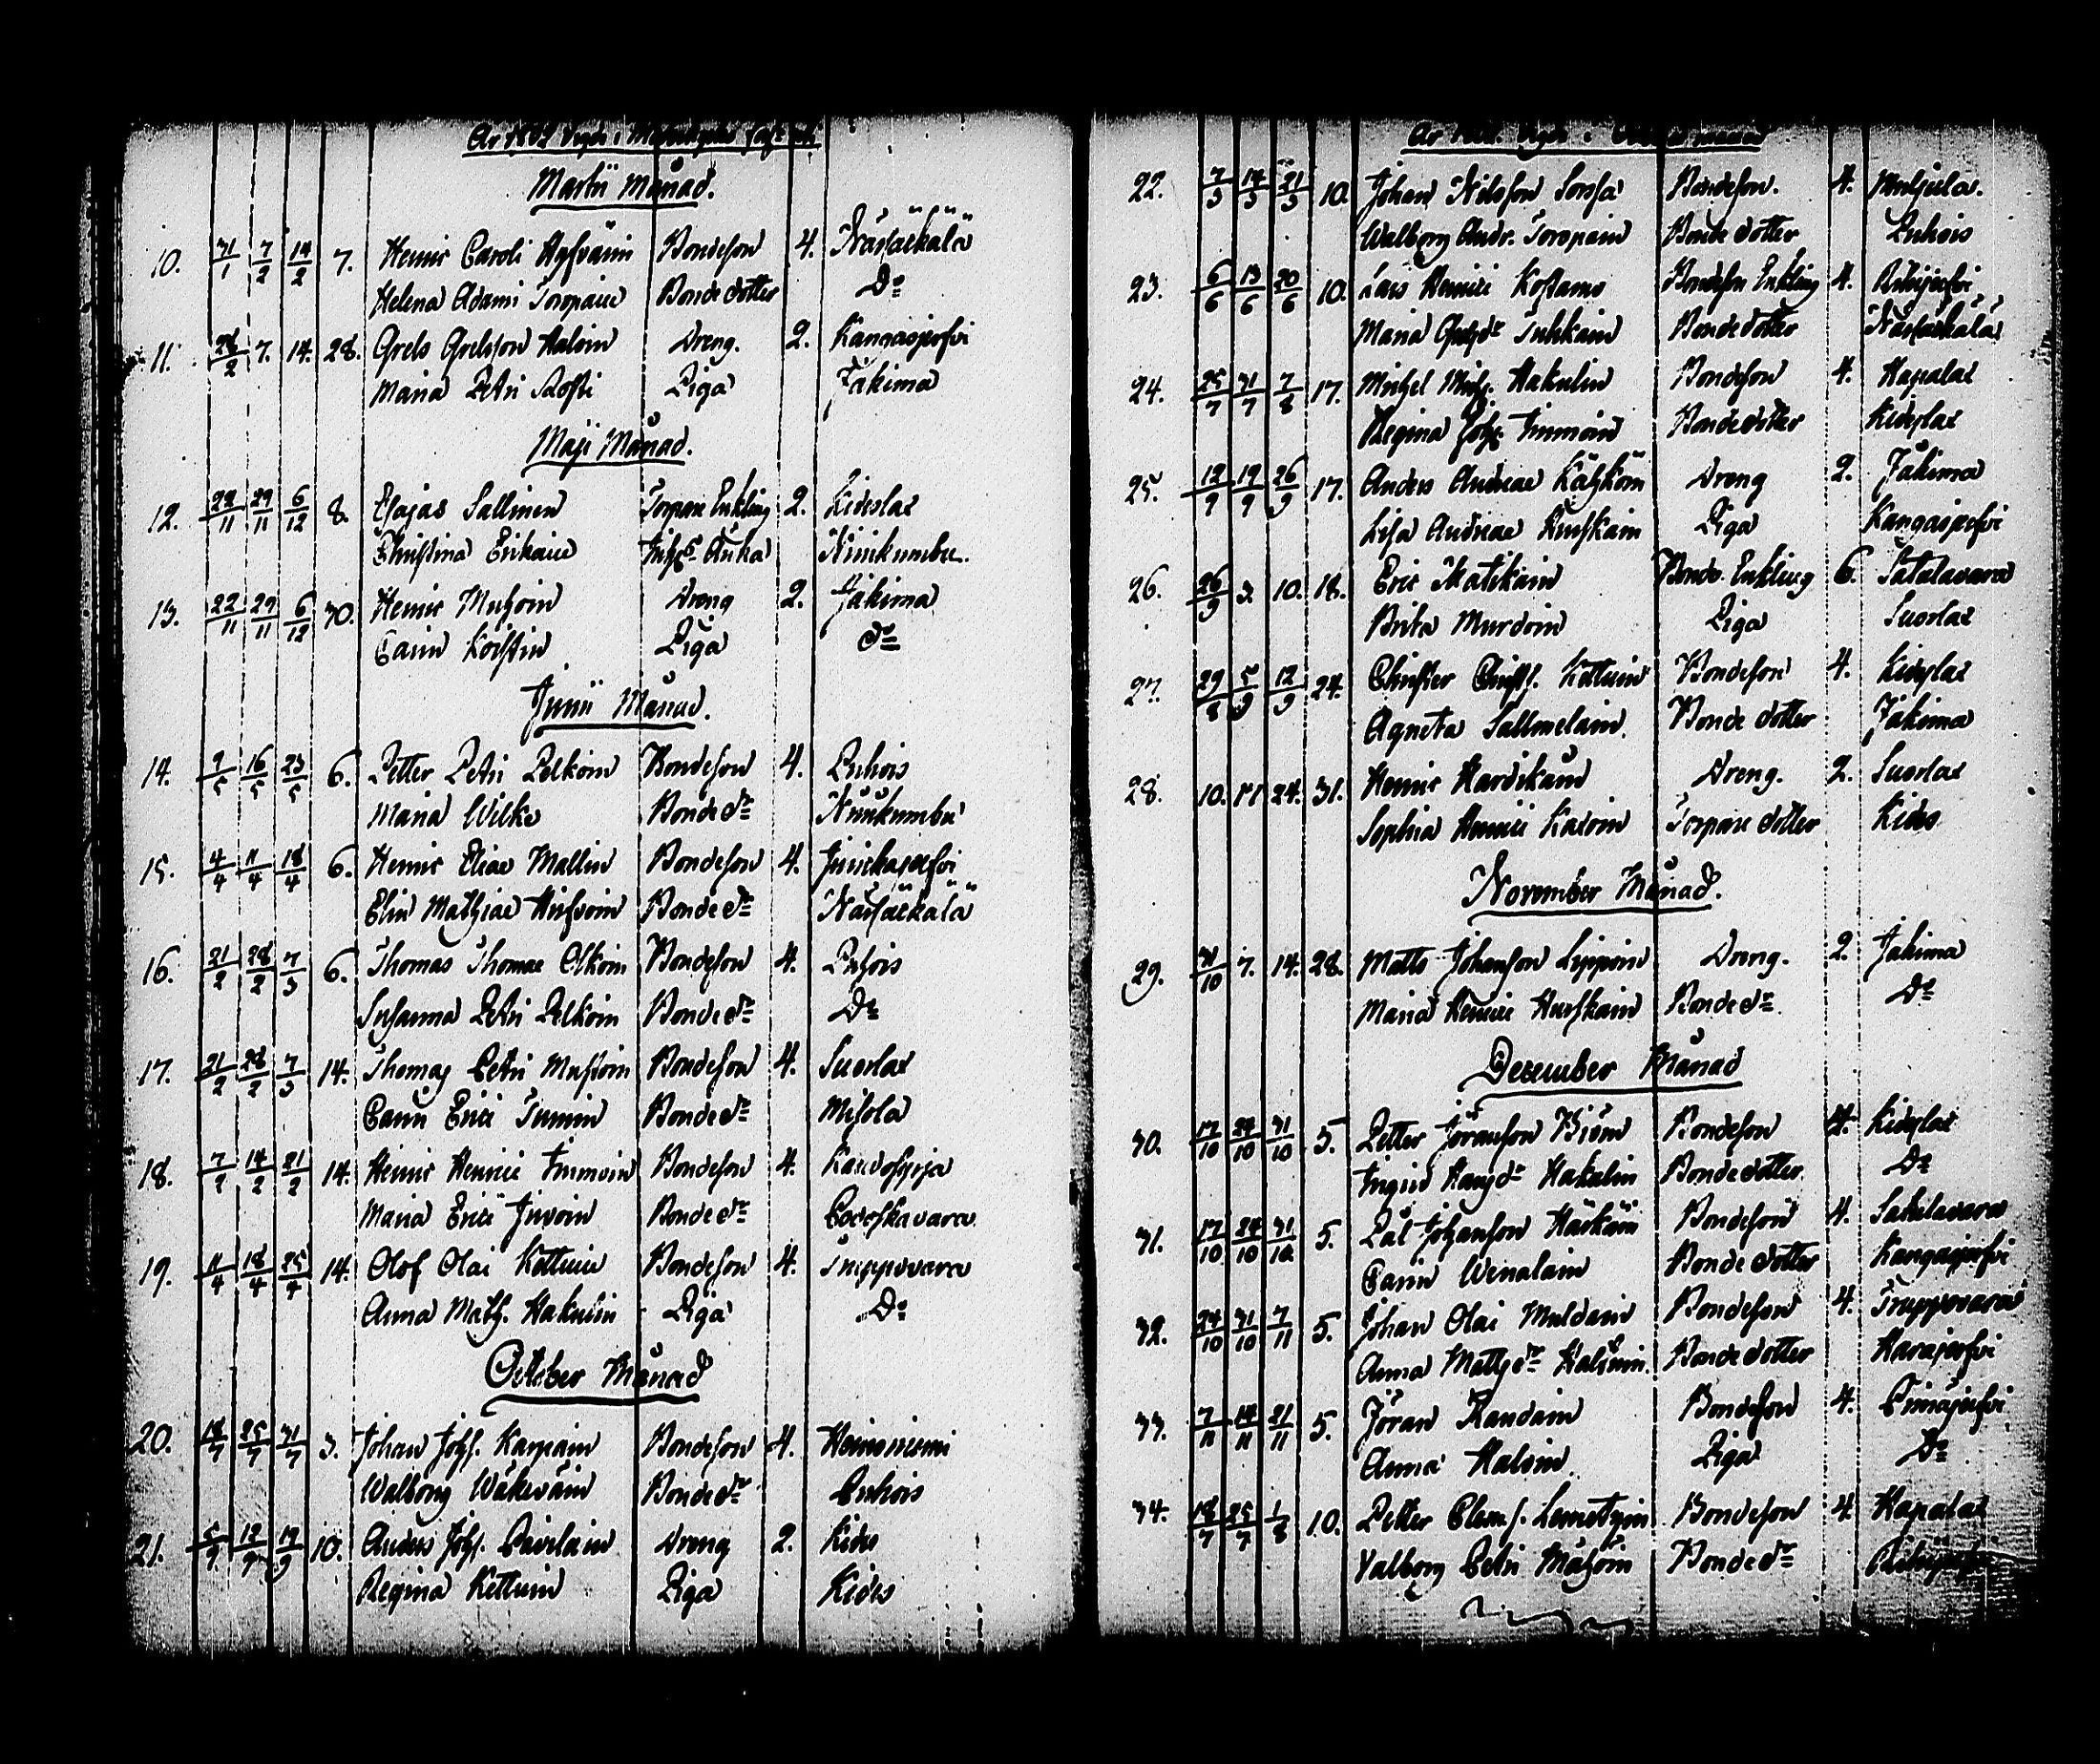 Martii Månad.
10. 31/1 7/2 14/2 7. Henric Caroli Hyfväin Bondeson 4. Näsfäckälä
Helena Adami Toropain Bonde dotter Do
11. 28/2 7. 14. 28. Grels Grelsson Dreng. 2. Kangasjerfvi
Maria Petri Piga Jakima
Maji Månad.
12. 22/11 29/11 6/12 8. Esajas Sallinen Torpare Enkling 2. Kideslax
Christina Erikain Enka Niinikumbu
13. 22/11 29/11 6/12 30. Henric Dreng 2. Jakima
Carin Piga do
Junii Månad.
14. 9/5 16/5 23/5 6. Petter Petri Pelkoin Bondeson 4. Puhois
Maria Wilke Bonde dr Niinikumbu
15. 4/4 11/4 18/4 6. Henric Eliae Mallin Bondeson 4. Juurikajerfvi
Elin Mathiae Hirfvoin Bonde dr Näsfäckälä
16. 21/2 28/2 7/3 6. Thomas Thomae Olkoin Bondeson 4. Puhois
Susanna Petri Pelkoin Bonde dr Do
17. 21/2 28/2 7/3 14. Thomas Petri Bondeson 4. Suorlax
Carin Erici Bonde dr Misola
18. 7/2 14/2 21/2 14. Henric Henrici Immoin Bondeson 4.
Maria Erici Juvoin Bonde dr
19. 11/4 18/4 25/4 14. Olof Olai Kettuin Bondeson 4. Truppovara
Anna Math. Hakulin Piga Do
October Månad
20. 18/7 25/7 31/7 3. Johan Johs. Karpain Bondeson 4. Heinoniemi
Walborg Wäkeväin Bonde dr Puhois
21. 5/9 12/9 19/9 10. Anders Johs. Pavilain Dreng 2. Kides
Regina Kettuin Piga Kides
22. 7/3 14/3 21/3 10. Johan Nilsson Sorsa Bondeson. 4. Muljula.
Walborg Andr. Toropain Bonde dotter Puhois
23. 6/6 13/6 20/6 10. Lars Henrici Kostamo Bondeson Enkling 4. Riihijerfvi
Maria Tuhkain Bonde dotter Näsfäckälä
24. 25/7 31/7 7/8 17. Michel Mich. Hakulin Bondeson 4. Hapalax
Regina Johs. Immoin Bonde dotter Kideslax
25. 12/9 19/9 26/9 17. Anders Andreae Dreng 2. Jakima
Lisa Andreae Hurskain Piga Kangasjerfvi
26. 26/9 3. 10. 18. Eric Matikain Bonde Enkling 6. Satulavara
Brita Murdoin Piga Suorlax
27. 29/8 5/9 12/9 24. Christer Christ. Kettuin Bondeson 4. Kideslax
Agneta Sallmelain. Bonde dotter Jakima
28. 10. 17 24. 31. Henric Hardikain Dreng. 2. Suorlax
Sophia Henrici Torpare dotter Kides
November Månad.
29. 31/10 7. 14. 28. Matts Johanson Lipponin Dreng. 2. Jakima
Maria Henrici Hurskain Bonde dr Do
December Månad
30. 17/10 24/10 31/10 5. Petter Jöranson Biörn Bondeson 4. Kideslax
Ingrid Hansdr Hakulin Bonde dotter Do
31. 17/10 24/10 31/10 5. Pål Johanson Härköin Bondeson 4. Satulavara
Carin Wenalain Bonde dotter Kangasjerfvi
32. 24/10 31/10 7/11 5. Johan Olai Muldain Bondeson 4. Truppovara
Anna Mattsdr Bonde dotter Harajerfvi
33. 7/11 14/11 21/11 5. Jöran Raudain Bondeson 4.
Anna Haloin Piga Do
34. 18/7 25/7 1/8 10. Petter Clem. s. Lemetyin Bondeson 4. Hapalax
Valborg Petri Bonde dr